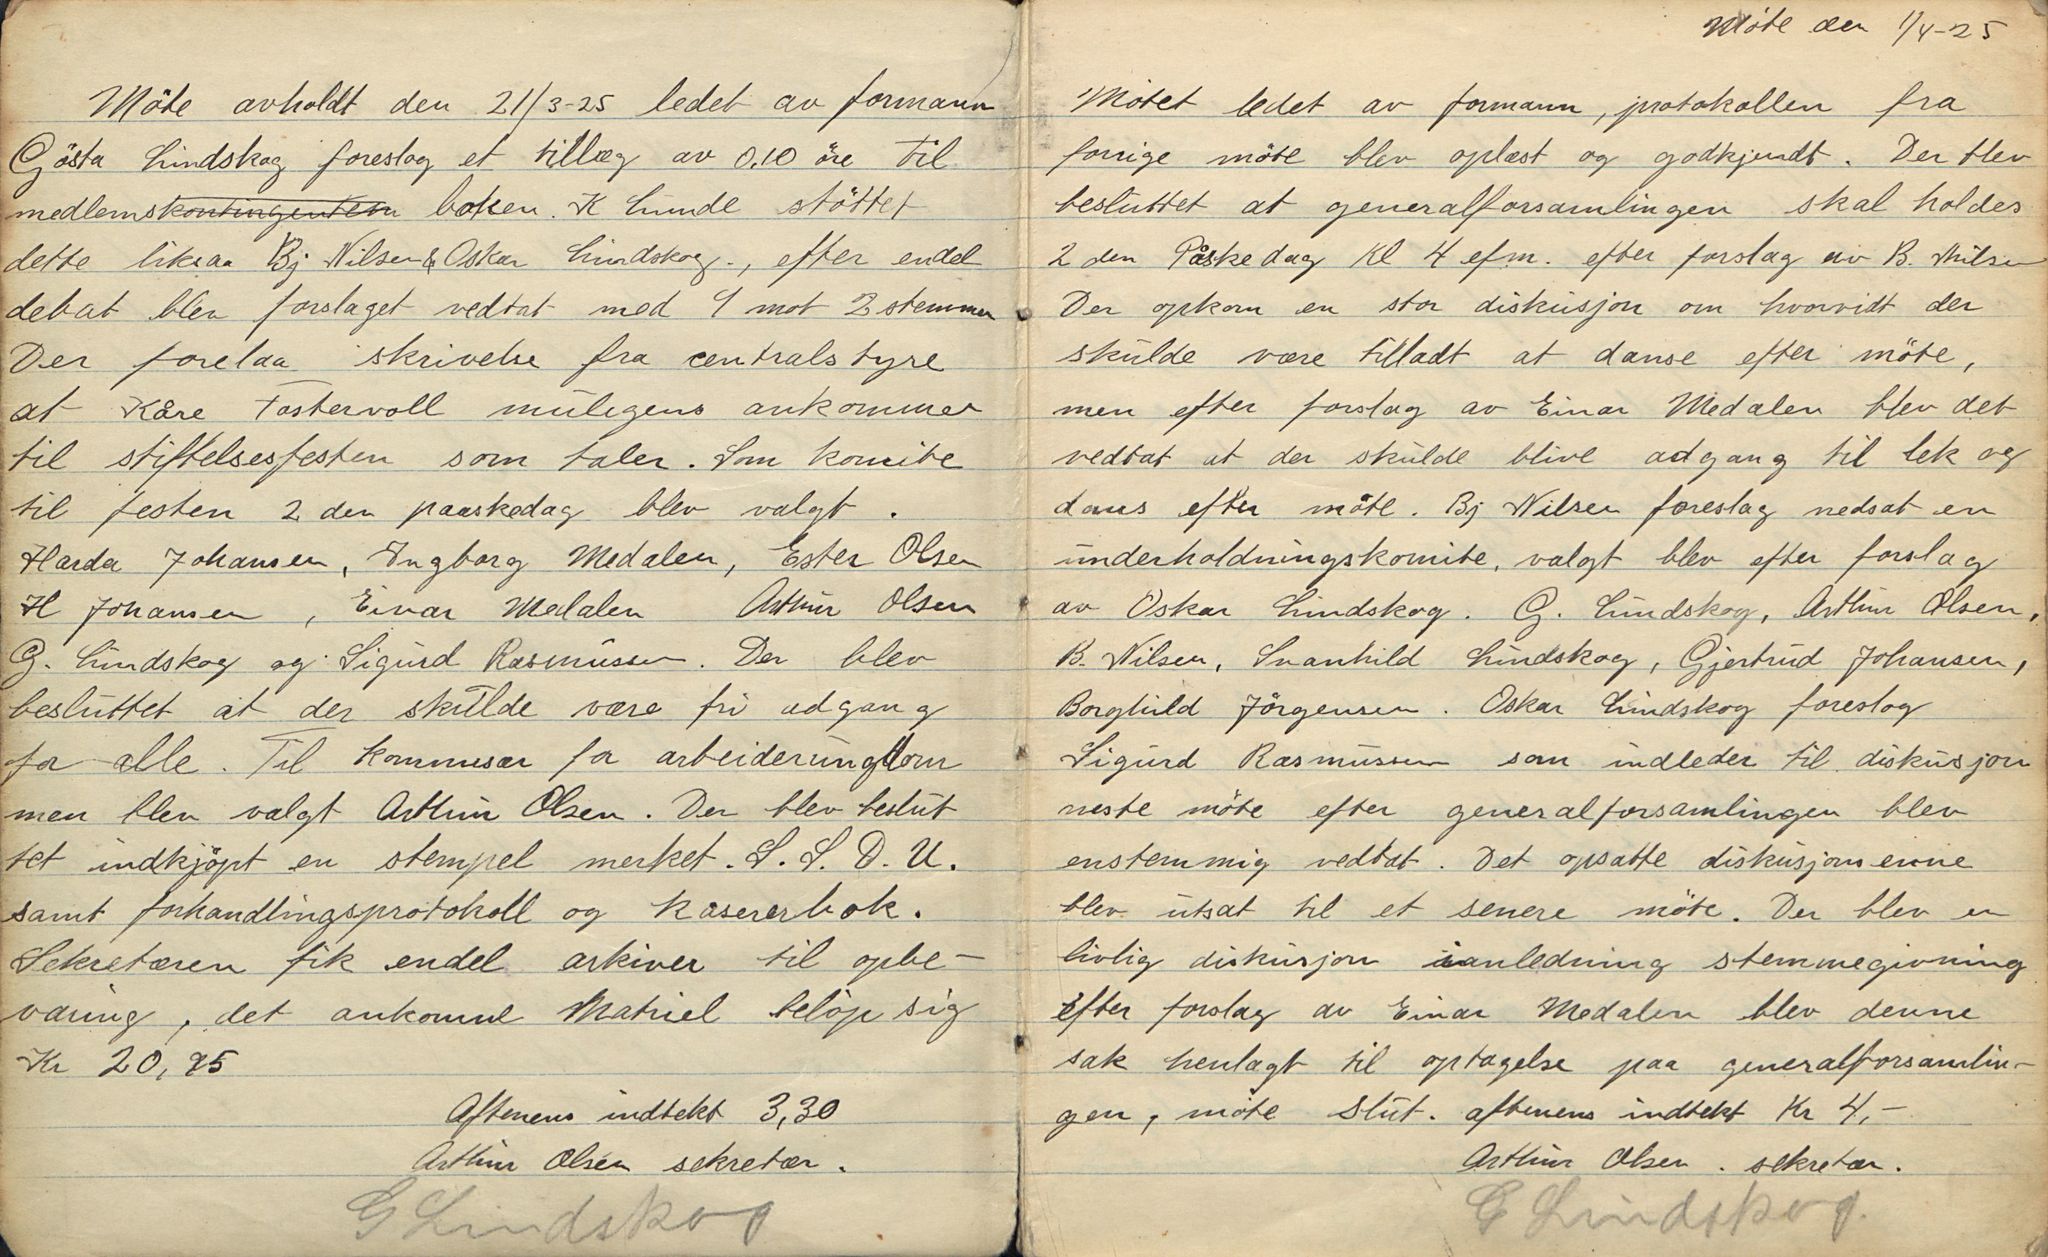 Möte avholdt den 21/3-25 ledet av formann
Gösta Lindskog foreslog et tillæg av 0.10 öre til
medlemskontingenten boken. K Lunde stöttet
dette likesaa Bj Nilsen & Oskar Lindskog., efter endel
debat blev forslaget vedtat med 9 mot 2 stemmer
Der forelaa skrivelse fra centralstyre
at Kåre Fostervoll muligens ankommer
til stiftelsesfesten som taler. Som komite
til festen 2 den paaskedag blev valgt.
Harda Johansen, Ingborg Medalen, Ester Olsen
H Johansen, Einar Medalen Arthur Olsen
G. Lindskog og Sigurd Rasmussen. Der blev
besluttet at der skulde være fri adgang
for alle. Til kommisær for arbeiderungdom
men blev valgt Arthur Olsen. Der blev beslut
tet indkjöpt en stempel merket. S. S. D. U.
samt forhandlingsprotokoll og kasererbok.
Sekretæren fik endel arkiver til opbe-
varing, det ankomne Matriel belöp sig
Kr 20,95
Aftenens indtekt 3,30
Arthur Olsen sekretær.
G Lindskog
Möte den 1/4-25
Mötet ledet av formann, protokollen fra
forrige möte blev oplæst og godkjendt. Der blev
besluttet at generalforsamlingen skal holdes
2 den Påskedag Kl 4 efm. efter forslag av B. Nilsen
Der opkom en stor diskusjon om hvorvidt der
skulde være tilladt at danse efter möte,
men efter forslag av Einar Medalen blev det
vedtat at der skulde blive adgang til lek og
dans efter möte. Bj Nilsen foreslog nedsat en
underholdningskomite, valgt blev efter forslag
av Oskar Lindskog. G. Lindskog, Arthur Olsen,
B. Nilsen, Svanhild Lindskog, Gjertrud Johansen,
Borghild Jörgensen. Oskar Lindskog foreslog
Sigurd Rasmussen som indleder til diskusjon
neste möte efter generalforsamlingen blev
enstemmig vedtat. Det opsatte diskusjonsemne
blev utsat til et senere möte. Der blev en
livlig diskusjon ianledning stemmegivning
Efter forslag av Einar Medalen blev denne
sak henlagt til optagelse paa generalforsamlin-
gen, möte slut. aftenens indtekt Kr 4,-
Arthur Olsen. sekretær.
G Lindskog.